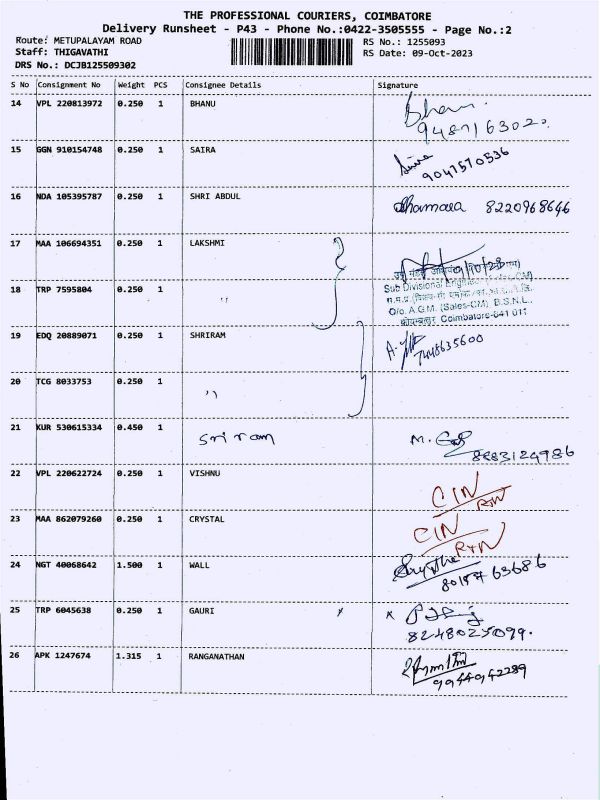 THE PROFESSIONAL COURIERS, COIMBATORE
Delivery Runsheet - P43 - Phone No.:0422-3505555 - Page No.:2
Route: METUPALAYAM ROAD RS No.: 1255093
Staff: THIGAVATHI RS Date: 09-Oct-2023
DRS No.: DCJB125509302
S No Consignment No Weight PCS Consignee Details Signature
14 VPL 220813972 0.250 1 BHANU
9487163020.
15 GGN 910154748 0.250 1 SAIRA
9047570536
16 NDA 105395787 0.250 1 SHRI ABDUL 8220968646
17 MAA 106694351 0.250 1 LAKSHMI
Sub Divisional
18 TRP 7595804 0.250 1 "
O/o. A.G.M. (Sales-CM) B.S.N.L.,
Coimbatore-641 011
19 EDQ 20889071 0.250 1 SHRIRAM
7448635600
20 TCG 8033753 0.250 1 "
21 KUR 530615334 0.450 1 Sri ram M.
8883124986
22 VPL 220622724 0.250 1 VISHNU
CIN
RTN
23 MAA 862079260 0.250 1 CRYSTAL
CIN
RTN
24 NGT 40068642 1.500 1 WALL
25 TRP 6045638 0.250 1 GAURI
8248025099.
26 APK 1247674 1.315 1 RANGANATHAN
9944942289